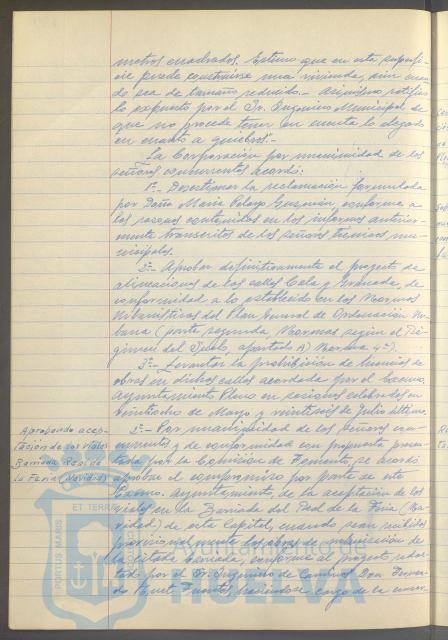 metros cuadrados. Estimo que en esta superfi-
cie puede construirse una vivienda, aun cuan-
do sea de tamaño reducido.- Asimismo ratifico
lo expuesto por el Sr. Ingeniero Municipal de
que no procede tener en cuenta lo alegado
en cuanto a quiebros".-
La Corporación por unanimidad de los
señores concurrentes acordó:
1º.- Desestimar la reclamación formulada
por Doña María Pelayo Guzmán, conforme a
las razones contenidas en los informes anterior-
mente transcritos de los señores técnicos mu-
nicipales.
2º.- Aprobar definitivamente el proyecto de
alineaciones de las calles Cala y Granada, de
conformidad a lo establecido en las Normas
Urbanísticas del Plan General de Ordenación Ur-
bana (parte segunda Normas según el Ré-
gimen del Suelo, apartado A) Norma 4ª).
3º.- Levantar la prohibición de licencias de
obras en dichas calles acordada por el Excmo.
Ayuntamiento Pleno en sesiones celebradas en
veintiocho de Mayo y veintiseis de Julio último.
Aprobando acep-
tación de los viales
Barriada Real de
la Feria (Navidad)
2º.- Por unanimidad de los señores con-
currentes y de conformidad con propuesta presen-
tada por la Comisión de Fomento, se acordó
aprobar el compromiso por parte de este
Excmo. Ayuntamiento, de la aceptación de los
viales en la Barriada del Real de la Feria (Na-
vidad) de esta Capital, cuando sean recibidas
provisionalmente las obras de urbanización de
la citada barriada, conforme al proyecto redac-
tado por el Sr. Ingeniero de Caminos Don Fernan-
do Fuentes, haciéndose cargo de la conser-
PORTUS MARIS
ET TERRAE
Ayuntamiento de
HUELVA